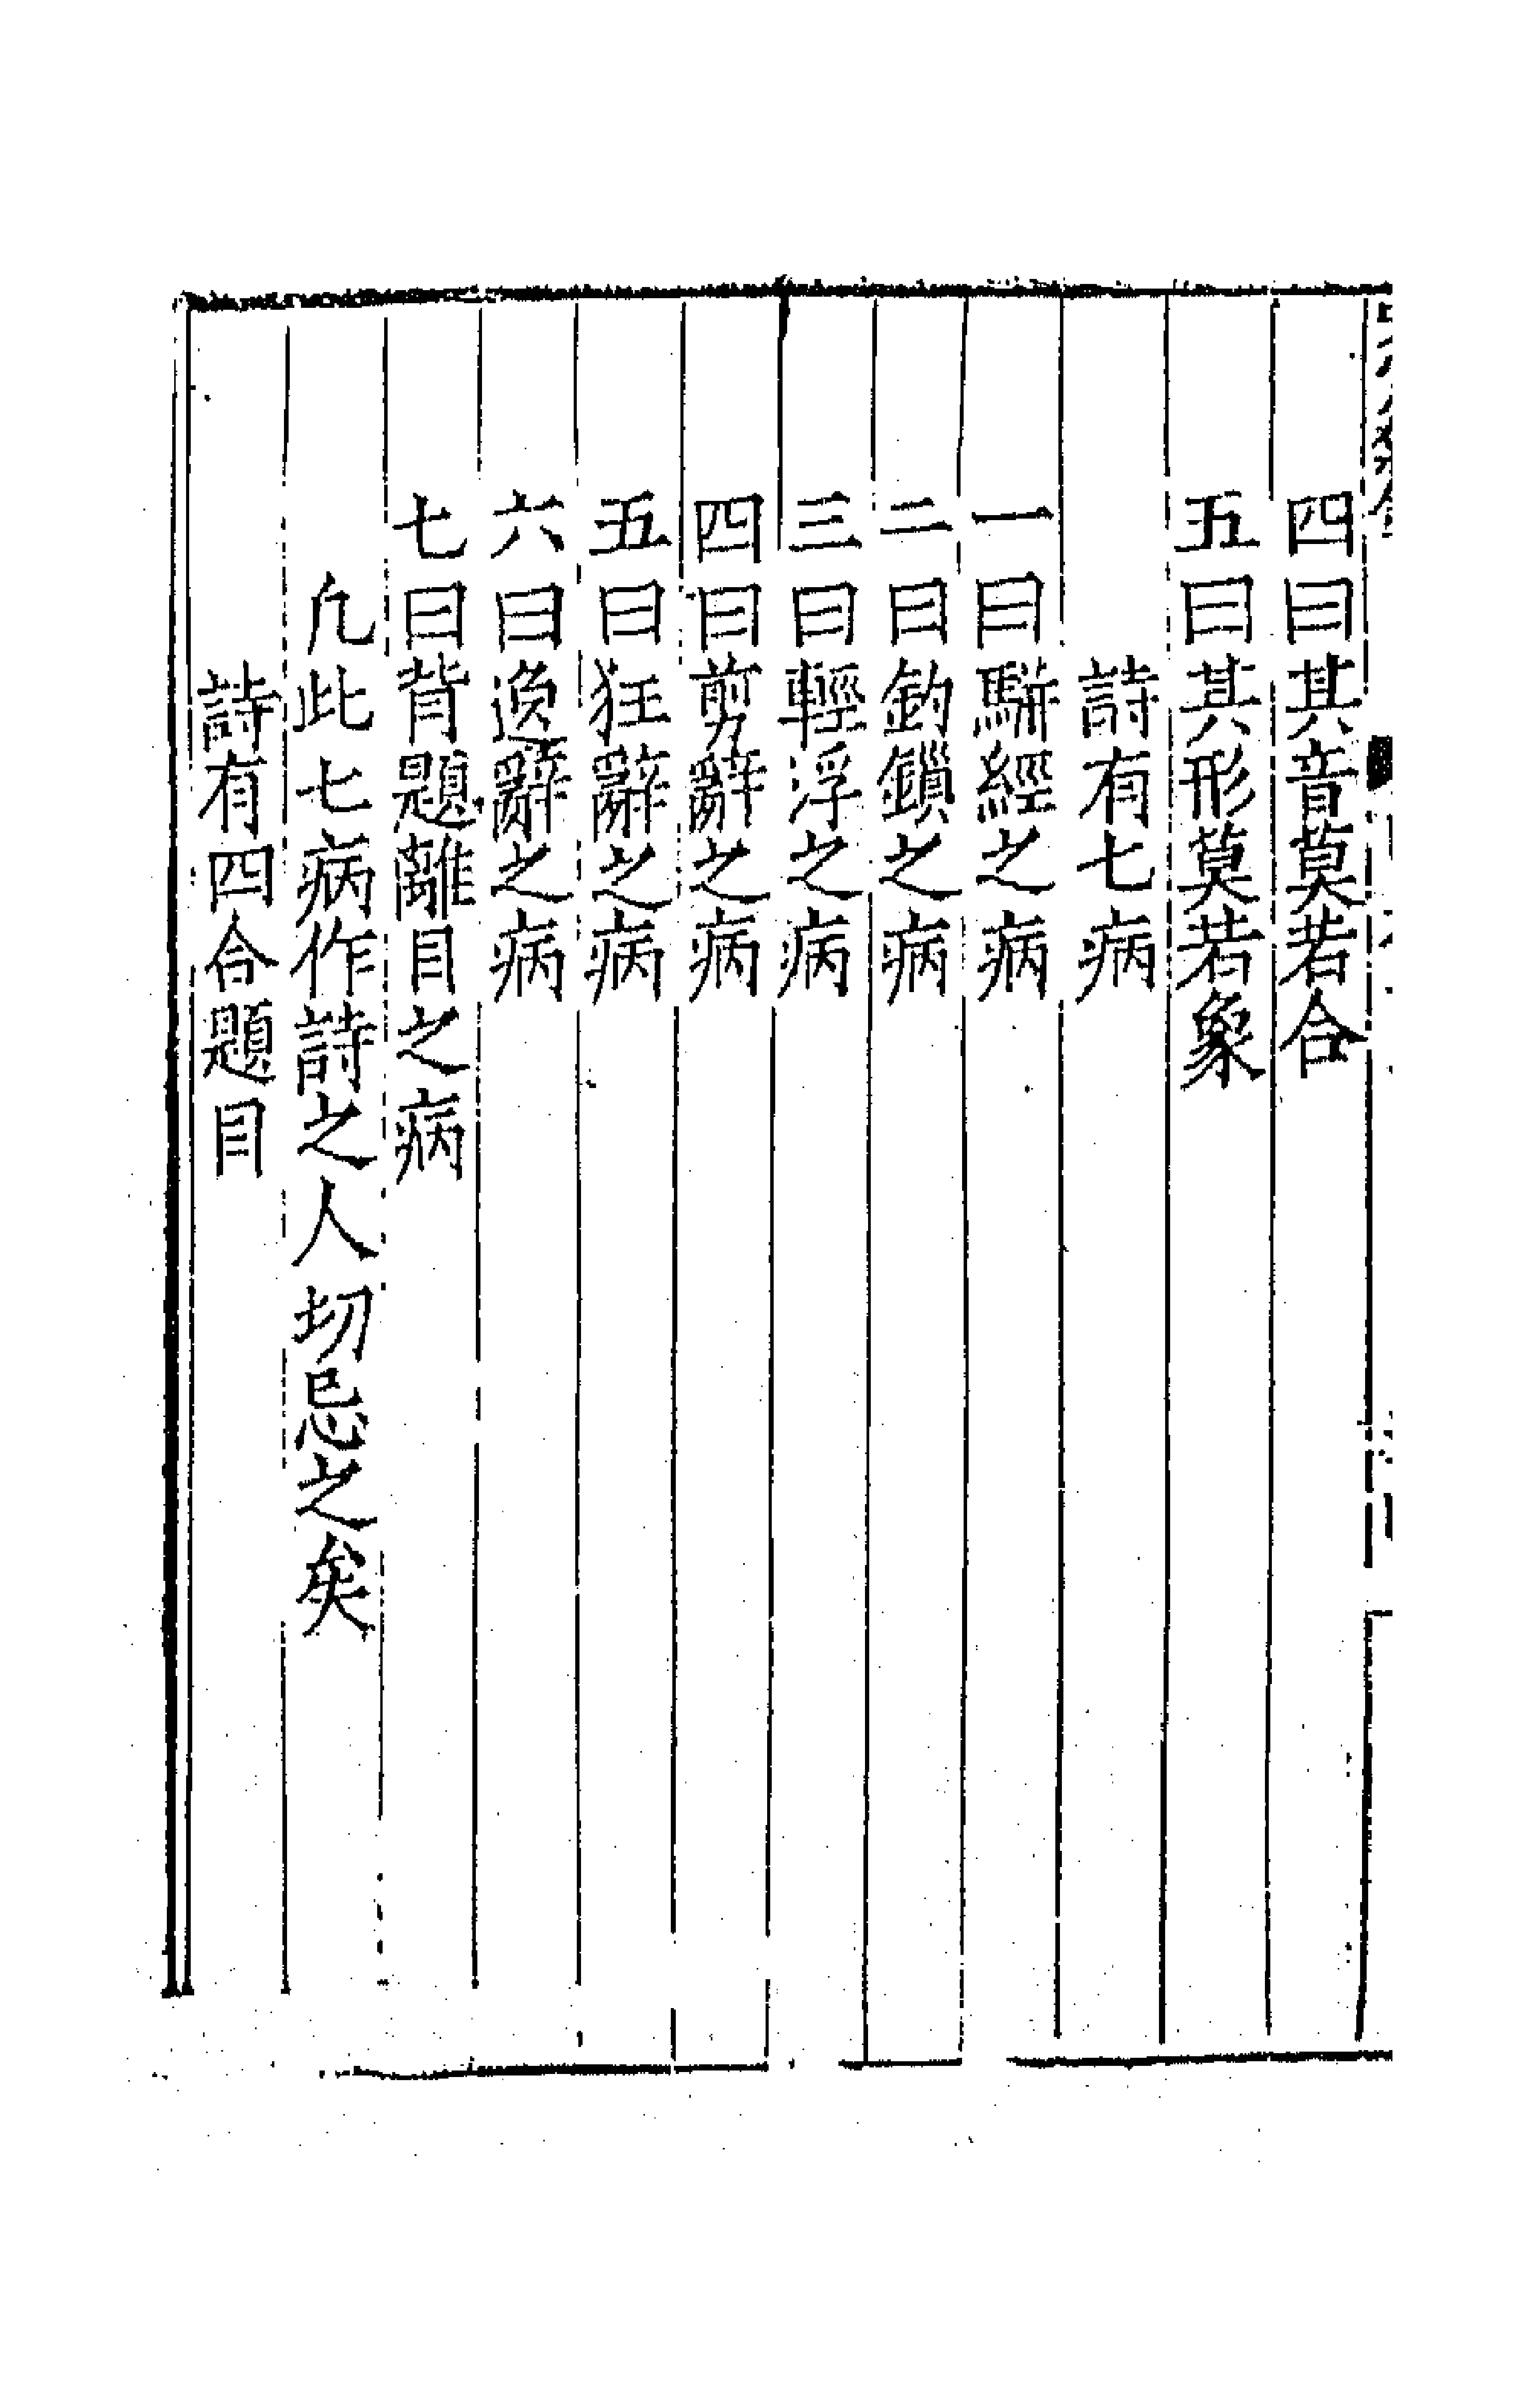 四曰其音莫若合
五曰其形莫若象
詩有七病
一曰駢經之病
二曰鈎鎖之病
三曰輕浮之病
四曰剪辭之病
五曰狂辭之病
六曰逸辭之病
七曰背題離目之病
凡此七病作詩之人切忌之矣
詩有四合題目